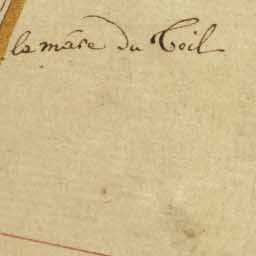 la mare du Toil